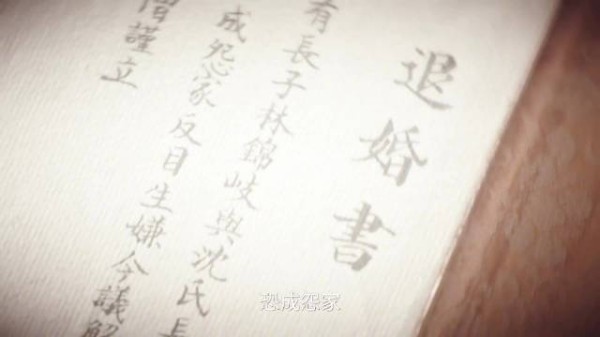 退婚書
有長子林錦岐與沈氏長
成怨家反目生嫌今議解
謹立
恐成怨家